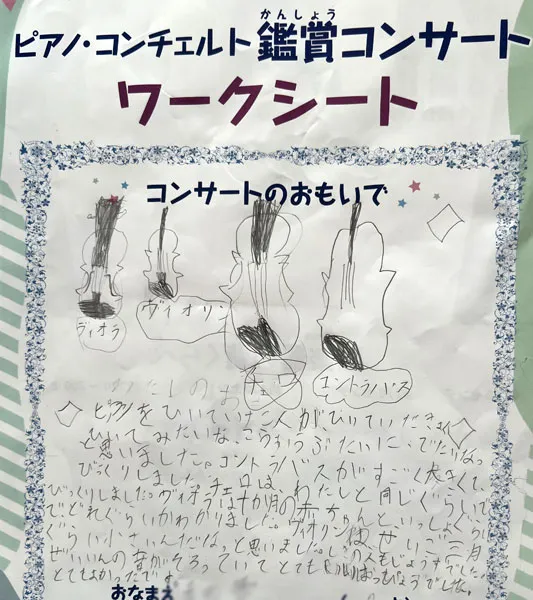 かんしょう
ピアノ・コンチェルト 鑑賞コンサート
ワークシート
コンサートのおもいで
ヴィオラ
ヴィオリン
チェロ
コントラバス
わたしのお
ピアノをひいていた人が
ひいてみたいな、こういうぶたいに、でたいなっ
と思いました。コントラバスがすごく大きくて
びっくりしました。チェロは、わたしと同じぐらい
びっくりしました。ヴィオラは十か月の赤ちゃんと、いっしょぐらい
でどれぐらいかわかりました。ヴィオリンは
ぐらい小さいんだな、と思いました。
ぜんいんの音がそろっていてとても
とてもよかったです
おなまえ